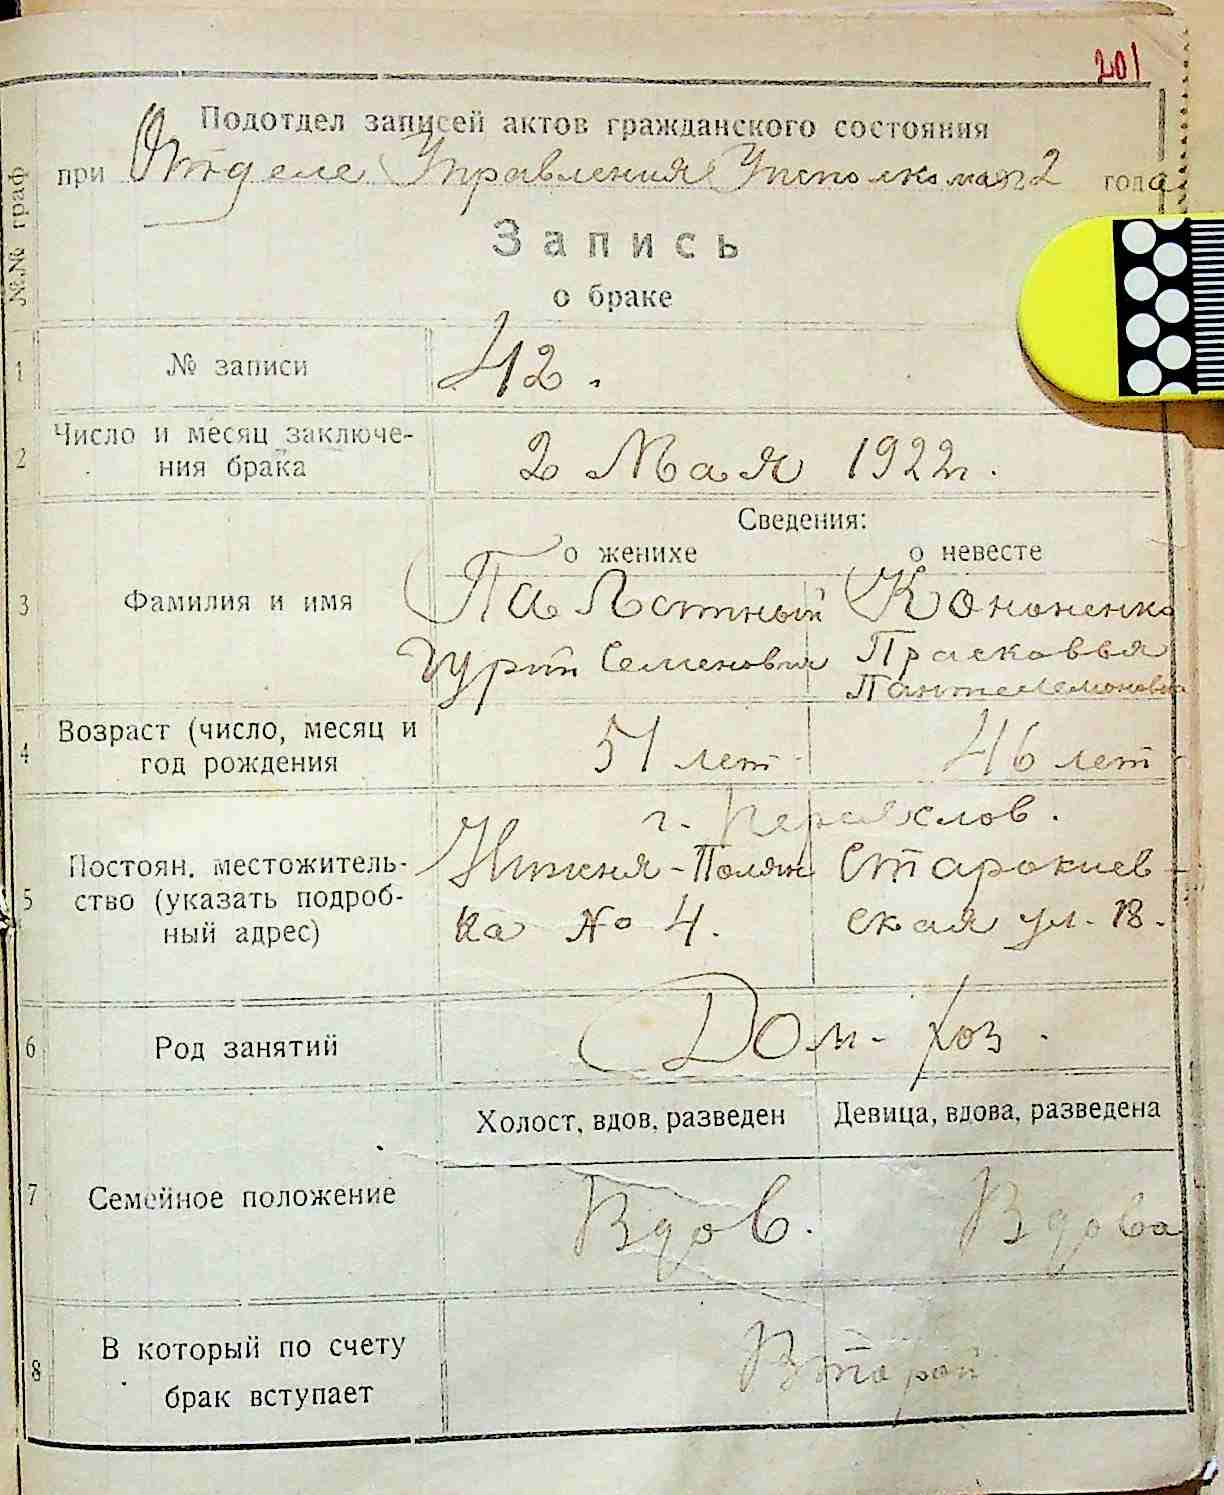 201
Подотдел записей актов гражданского состояния
при Отделе Управления Исполкома 2 года
№№ граф
Запись
о браке
1 № записи 42.
2 Число и месяц заключе-
ния брака 2 Мая 1922 г.
Сведения:
о женихе о невесте
3 Фамилия и имя Палатный Кононенко
Гурий Семенович Прасковья
Пантелемоновна
4 Возраст (число, месяц и
год рождения 51 лет 46 лет
г. Переяслов.
5 Постоян. местожитель-
ство (указать подроб-
ный адрес) Нижня-Полян Старокиев-
ка № 4. ская ул. 18.
6 Род занятий Дом-хоз.
Холост, вдов, разведен Девица, вдова, разведена
7 Семейное положение Вдов. Вдова
8 В который по счету
брак вступает Второй